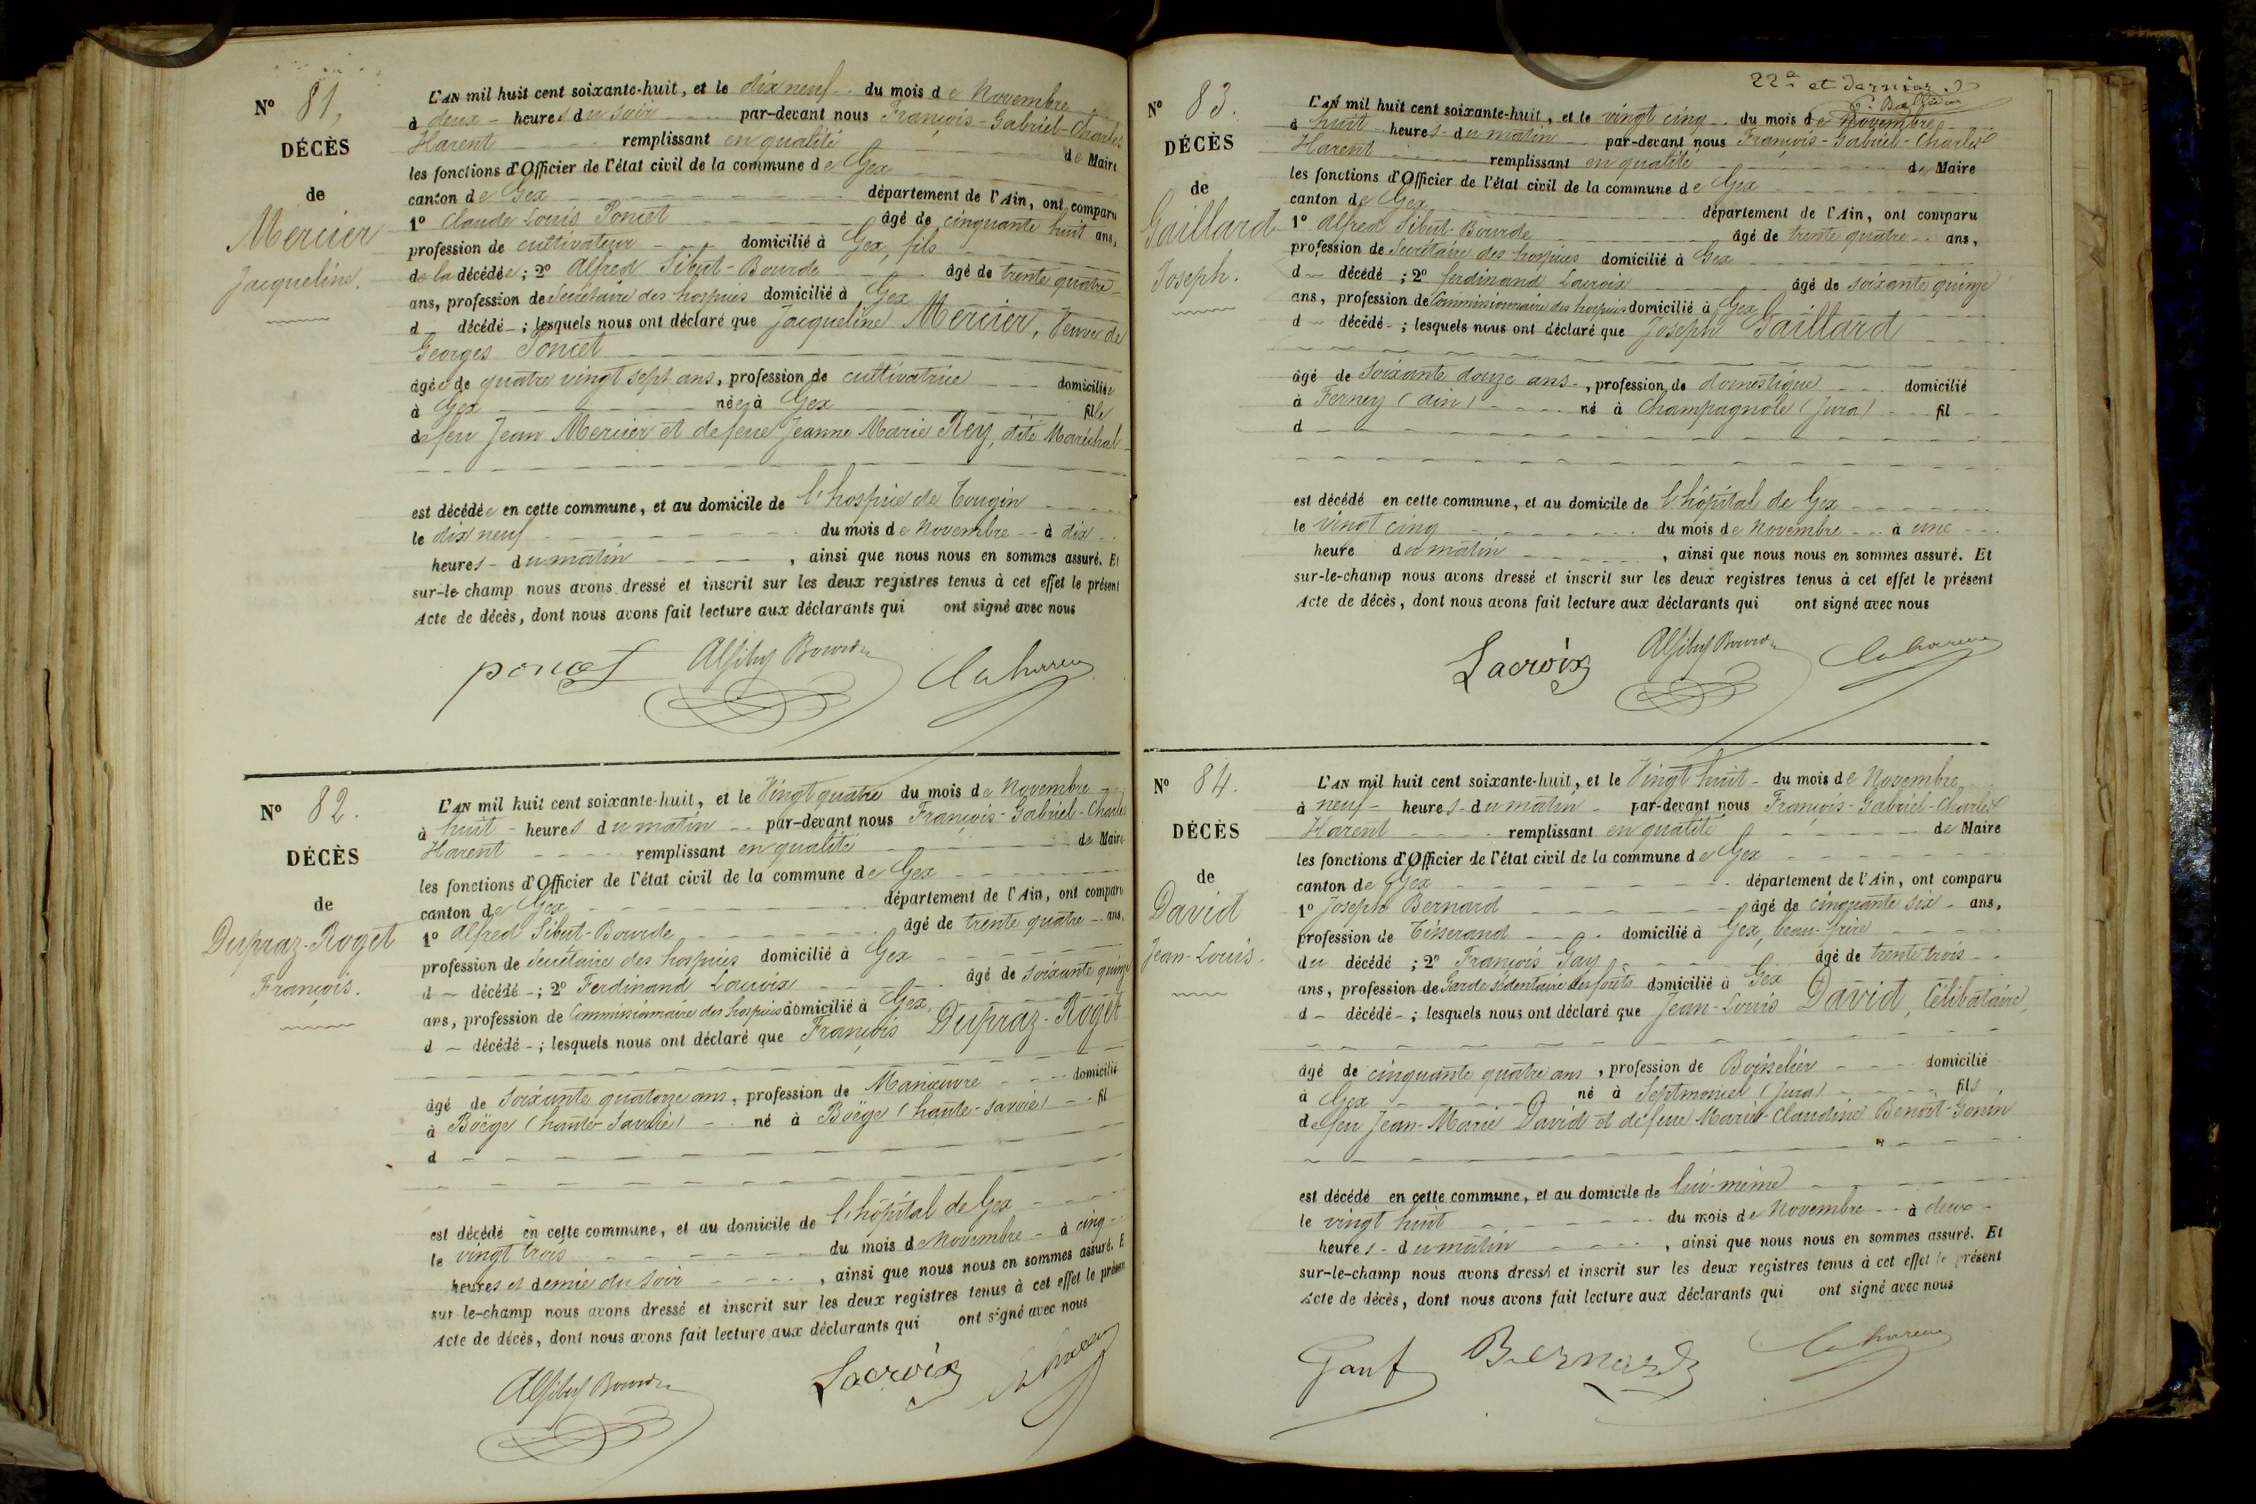 N° 81.
DÉCÈS
de
Mercier
Jacqueline.
L'AN mil huit cent soixante-huit, et le dix neuf du mois de Novembre
à deux heures du soir par-devant nous François-Gabriel-Charles
Harent remplissant en qualité de Maire
les fonctions d'Officier de l'état civil de la commune de Gex
canton de Gex département de l'Ain, ont comparu
1° Claude Louis Poncet âgé de cinquante huit ans,
profession de cultivateur domicilié à Gex, fils
de la décédée; 2° Alfred Sibut-Bourde âgé de trente quatre
ans, profession de Secrétaire des hospices domicilié à Gex
d décédé; lesquels nous ont déclaré que Jacqueline Mercier, Veuve de
Georges Poncet
âgée de quatre vingt sept ans, profession de cultivatrice domiciliée
à Gex née à Gex fille
de feu Jean Mercier et de feue Jeanne Marie Rey, dite Maréchal
est décédée en cette commune, et au domicile de l'hospice de Tougin
le dix neuf du mois de Novembre à dix
heures du matin, ainsi que nous nous en sommes assuré. Et
sur-le-champ nous avons dressé et inscrit sur les deux registres tenus à cet effet le présent
Acte de décès, dont nous avons fait lecture aux déclarants qui ont signé avec nous
poncet
N° 82.
DÉCÈS
de
Dupraz-Roget
François.
L'AN mil huit cent soixante-huit, et le Vingt quatre du mois de Novembre
à huit heures du matin par-devant nous François-Gabriel-Charles
Harent remplissant en qualité de Maire
les fonctions d'Officier de l'état civil de la commune de Gex
canton de Gex département de l'Ain, ont comparu
1° Alfred Sibut-Bourde âgé de trente quatre ans,
profession de Secrétaire des hospices domicilié à Gex
d décédé; 2° Ferdinand Lacroix âgé de soixante quinze
ans, profession de Commissionnaire des hospices domicilié à Gex
d décédé; lesquels nous ont déclaré que François Dupraz-Roget
âgé de soixante quatorze ans, profession de Manœuvre domicilié
à Boëge (haute-Savoie) né à Boëge (haute-Savoie) fil
d
est décédé en cette commune, et au domicile de l'hôpital de Gex
le vingt trois du mois de Novembre à cinq
heures et demie du soir, ainsi que nous nous en sommes assuré. E
sur-le-champ nous avons dressé et inscrit sur les deux registres tenus à cet effet le présen
Acte de décès, dont nous avons fait lecture aux déclarants qui ont signé avec nous
Lacroix
22e et dernier
N° 83.
DÉCÈS
de
Gaillard
Joseph.
L'AN mil huit cent soixante-huit, et le vingt cinq du mois de Novembre
à huit heures du matin par-devant nous François-Gabriel-Charles
Harent remplissant en qualité de Maire
les fonctions d'Officier de l'état civil de la commune de Gex
canton de Gex département de l'Ain, ont comparu
1° Alfred Sibut-Bourde âgé de trente quatre ans,
profession de Secrétaire des hospices domicilié à Gex
d décédé; 2° ferdinand Lacroix âgé de soixante quinze
ans, profession de Commissionnaire des hospices domicilié à Gex
d décédé; lesquels nous ont déclaré que Joseph Gaillard
âgé de soixante douze ans, profession de domestique domicilié
à Ferney (ain) né à Champagnole (Jura) fil
d
est décédé en cette commune, et au domicile de l'hôpital de Gex
le vingt cinq du mois de Novembre à une
heure du matin, ainsi que nous nous en sommes assuré. Et
sur-le-champ nous avons dressé et inscrit sur les deux registres tenus à cet effet le présent
Acte de décès, dont nous avons fait lecture aux déclarants qui ont signé avec nous
Lacroix
N° 84.
DÉCÈS
de
David
Jean-Louis.
L'AN mil huit cent soixante-huit, et le Vingt huit du mois de Novembre
à neuf heures du matin par-devant nous François-Gabriel-Charles
Harent remplissant en qualité de Maire
les fonctions d'Officier de l'état civil de la commune de Gex
canton de Gex département de l'Ain, ont comparu
1° Joseph Bernard âgé de cinquante six ans,
profession de Tisserand domicilié à Gex, beau-frère
du décédé; 2° François Gay âgé de trente trois
ans, profession de Garde sédentaire des forêts domicilié à Gex
d décédé; lesquels nous ont déclaré que Jean-Louis David, Célibataire,
âgé de cinquante quatre ans, profession de Boisselier domicilié
à Gex né à Septmoncel (Jura) fils
de feu Jean-Marie David et de feue Marie-Claudine Benoit-Gonin
est décédé en cette commune, et au domicile de lui-même
le vingt huit du mois de Novembre à deux
heures du matin, ainsi que nous nous en sommes assuré. Et
sur-le-champ nous avons dressé et inscrit sur les deux registres tenus à cet effet le présent
Acte de décès, dont nous avons fait lecture aux déclarants qui ont signé avec nous
Bernard